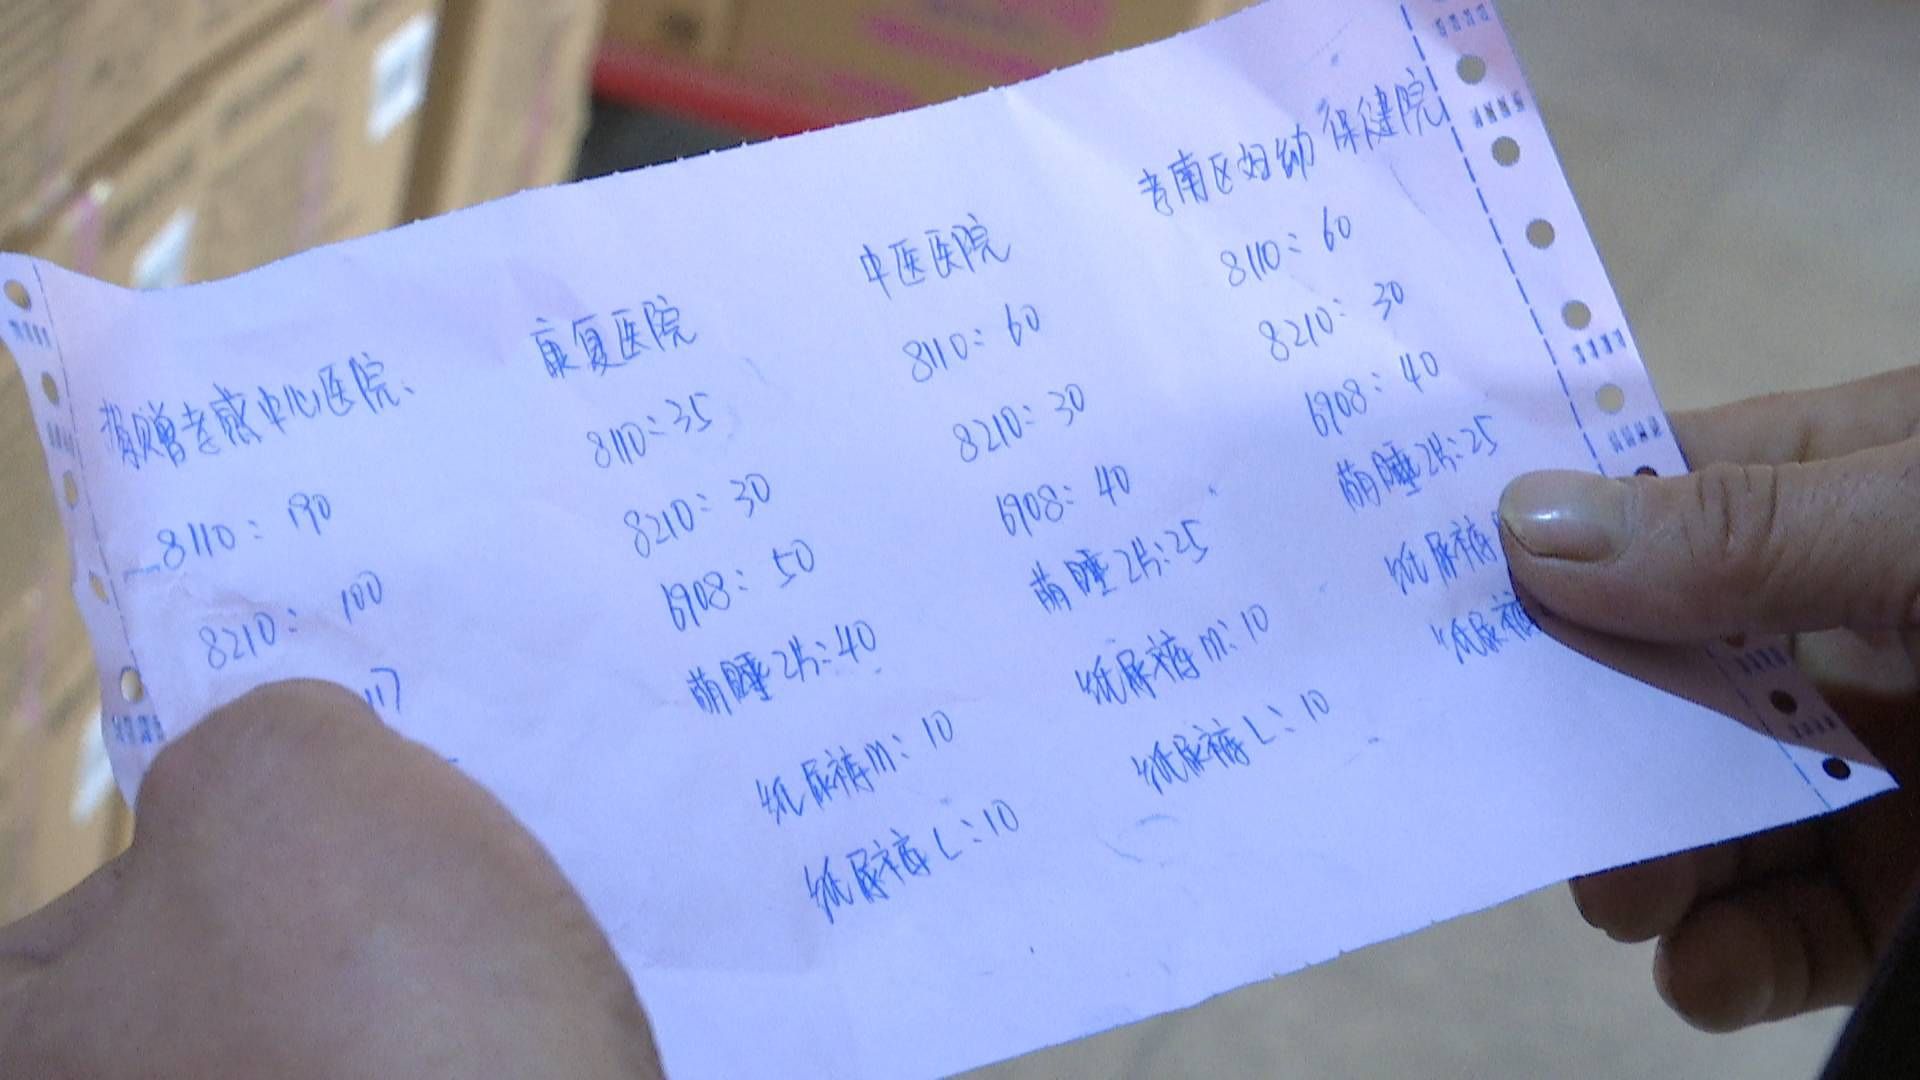 捐赠孝感中心医院、
8110: 190
8210: 100
117
康复医院
8110: 35
8210: 30
6908: 50
萌睡2片: 40
纸尿裤m: 10
纸尿裤L: 10
中医医院
8110: 60
8210: 30
6908: 40
萌睡2片: 25
纸尿裤m: 10
纸尿裤L: 10
孝南区妇幼保健院
8110: 60
8210: 30
6908: 40
萌睡2片: 25
纸尿裤
纸尿裤